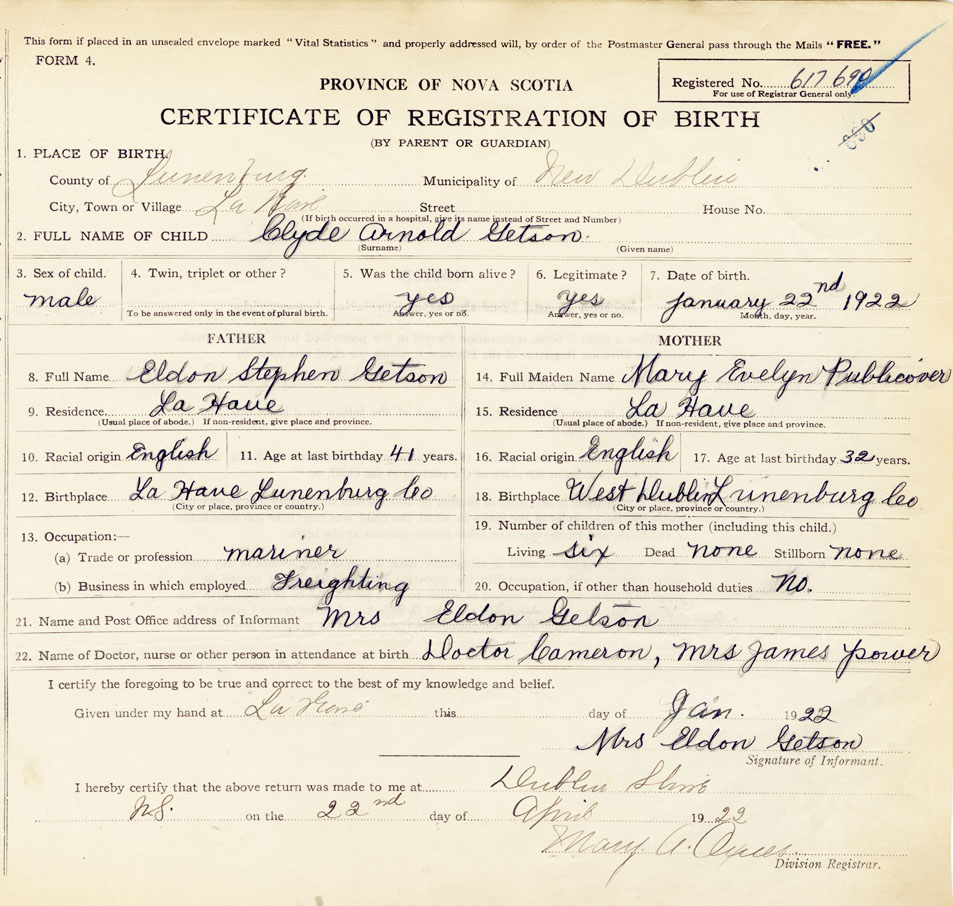 This form if placed in an unsealed envelope marked "Vital Statistics" and properly addressed will, by order of the Postmaster General pass through the Mails "FREE."
FORM 4.
Registered No. 617 690
For use of Registrar General only.
PROVINCE OF NOVA SCOTIA
CERTIFICATE OF REGISTRATION OF BIRTH
(BY PARENT OR GUARDIAN)
1. PLACE OF BIRTH.
County of Lunenburg Municipality of New Dublin
City, Town or Village La Have Street House No.
(If birth occurred in a hospital, give its name instead of Street and Number)
2. FULL NAME OF CHILD Clyde Arnold Getson
(Surname) (Given name)
3. Sex of child. 4. Twin, triplet or other? 5. Was the child born alive? 6. Legitimate? 7. Date of birth.
male yes yes January 22nd 1922
To be answered only in the event of plural birth. Answer, yes or no. Answer, yes or no. Month, day, year.
FATHER MOTHER
8. Full Name Eldon Stephen Getson 14. Full Maiden Name Mary Evelyn Publicover
9. Residence La Have 15. Residence La Have
(Usual place of abode.) If non-resident, give place and province. (Usual place of abode.) If non-resident, give place and province.
10. Racial origin English 11. Age at last birthday 41 years. 16. Racial origin English 17. Age at last birthday 32 years.
12. Birthplace La Have Lunenburg Co 18. Birthplace West Dublin Lunenburg Co
(City or place, province or country.) (City or place, province or country.)
13. Occupation:— 19. Number of children of this mother (including this child.)
(a) Trade or profession mariner Living six Dead none Stillborn none
(b) Business in which employed Freighting 20. Occupation, if other than household duties No.
21. Name and Post Office address of Informant Mrs Eldon Getson
22. Name of Doctor, nurse or other person in attendance at birth Doctor Cameron, Mrs James Power
I certify the foregoing to be true and correct to the best of my knowledge and belief.
Given under my hand at La Have this day of Jan. 1922
Mrs Eldon Getson
Signature of Informant.
I hereby certify that the above return was made to me at Dublin Shore
N.S. on the 22nd day of April 1922
Mary A.
Division Registrar.